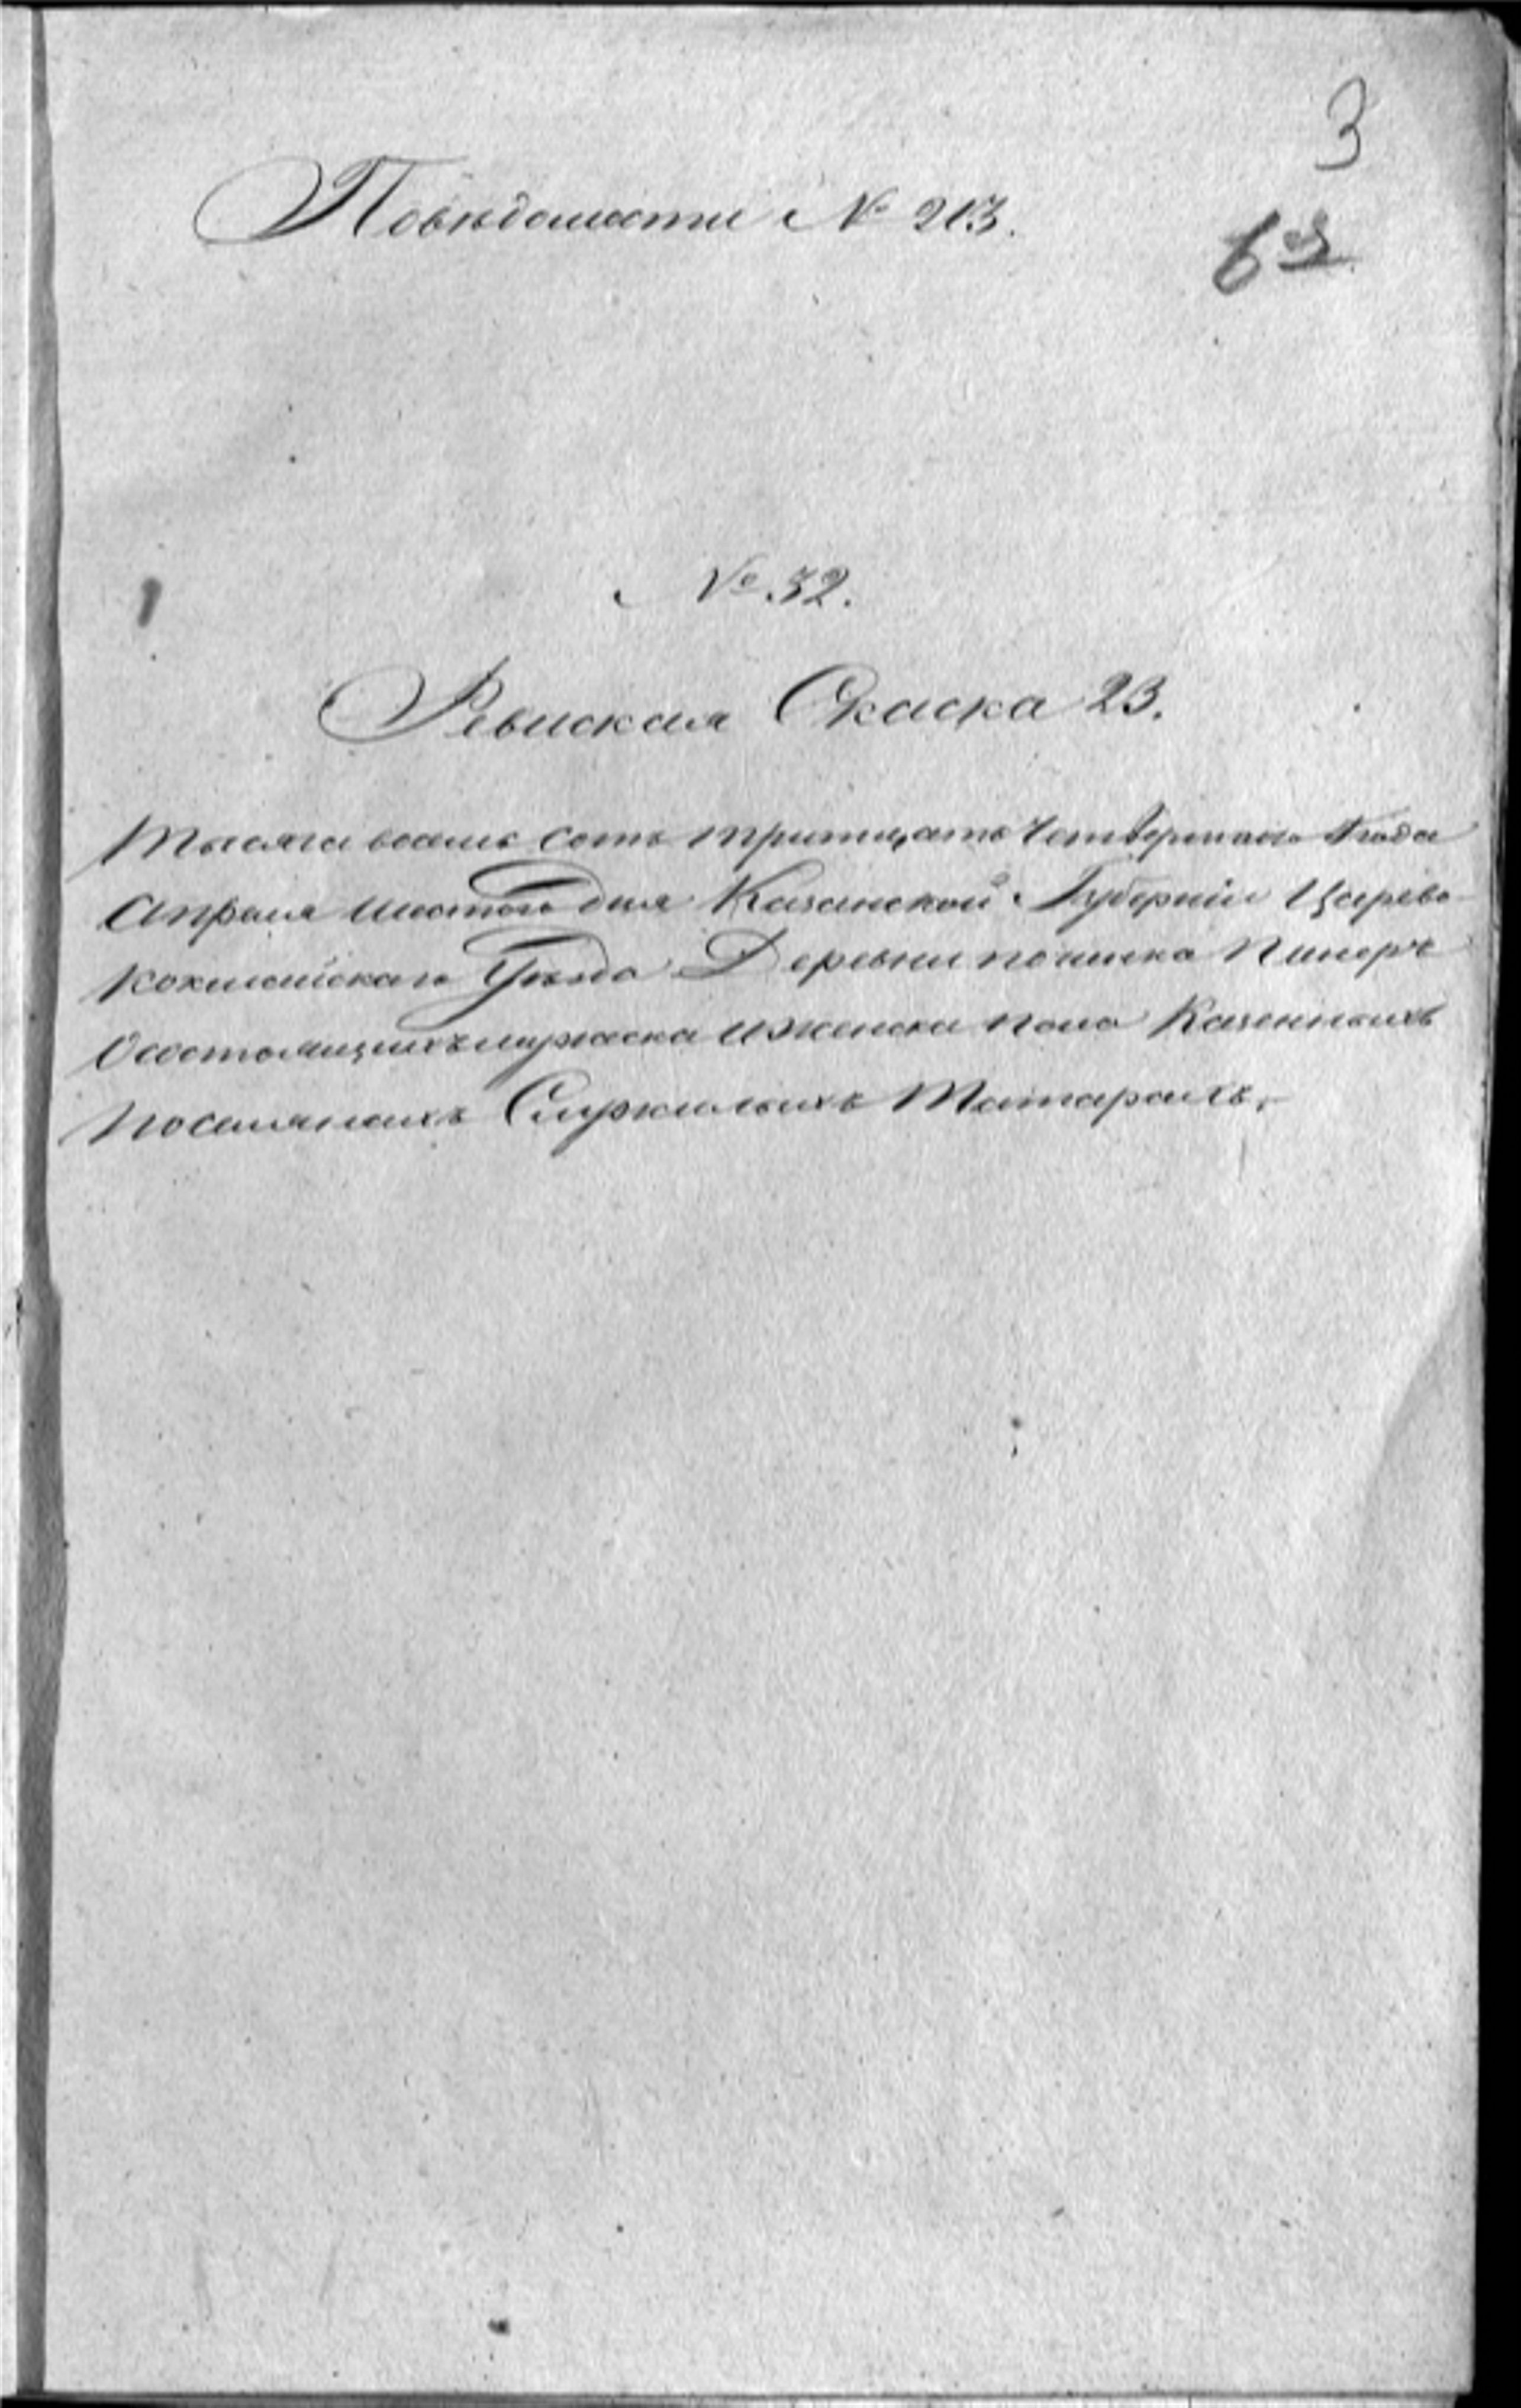 3
Повѣдомости № 213.
№ 32.
Ревиская Скаска 23.
Тысяча восемь сотъ тритцать Четвертаго Года
Апреля шестаго дня Казанской Губерніи Царево-
кокшайскаго Уѣзда Деревни починка Пинеръ
Осостоящихъ мужеска иженска пола Казенныхъ
поселянахъ Служилыхъ Татарахъ,